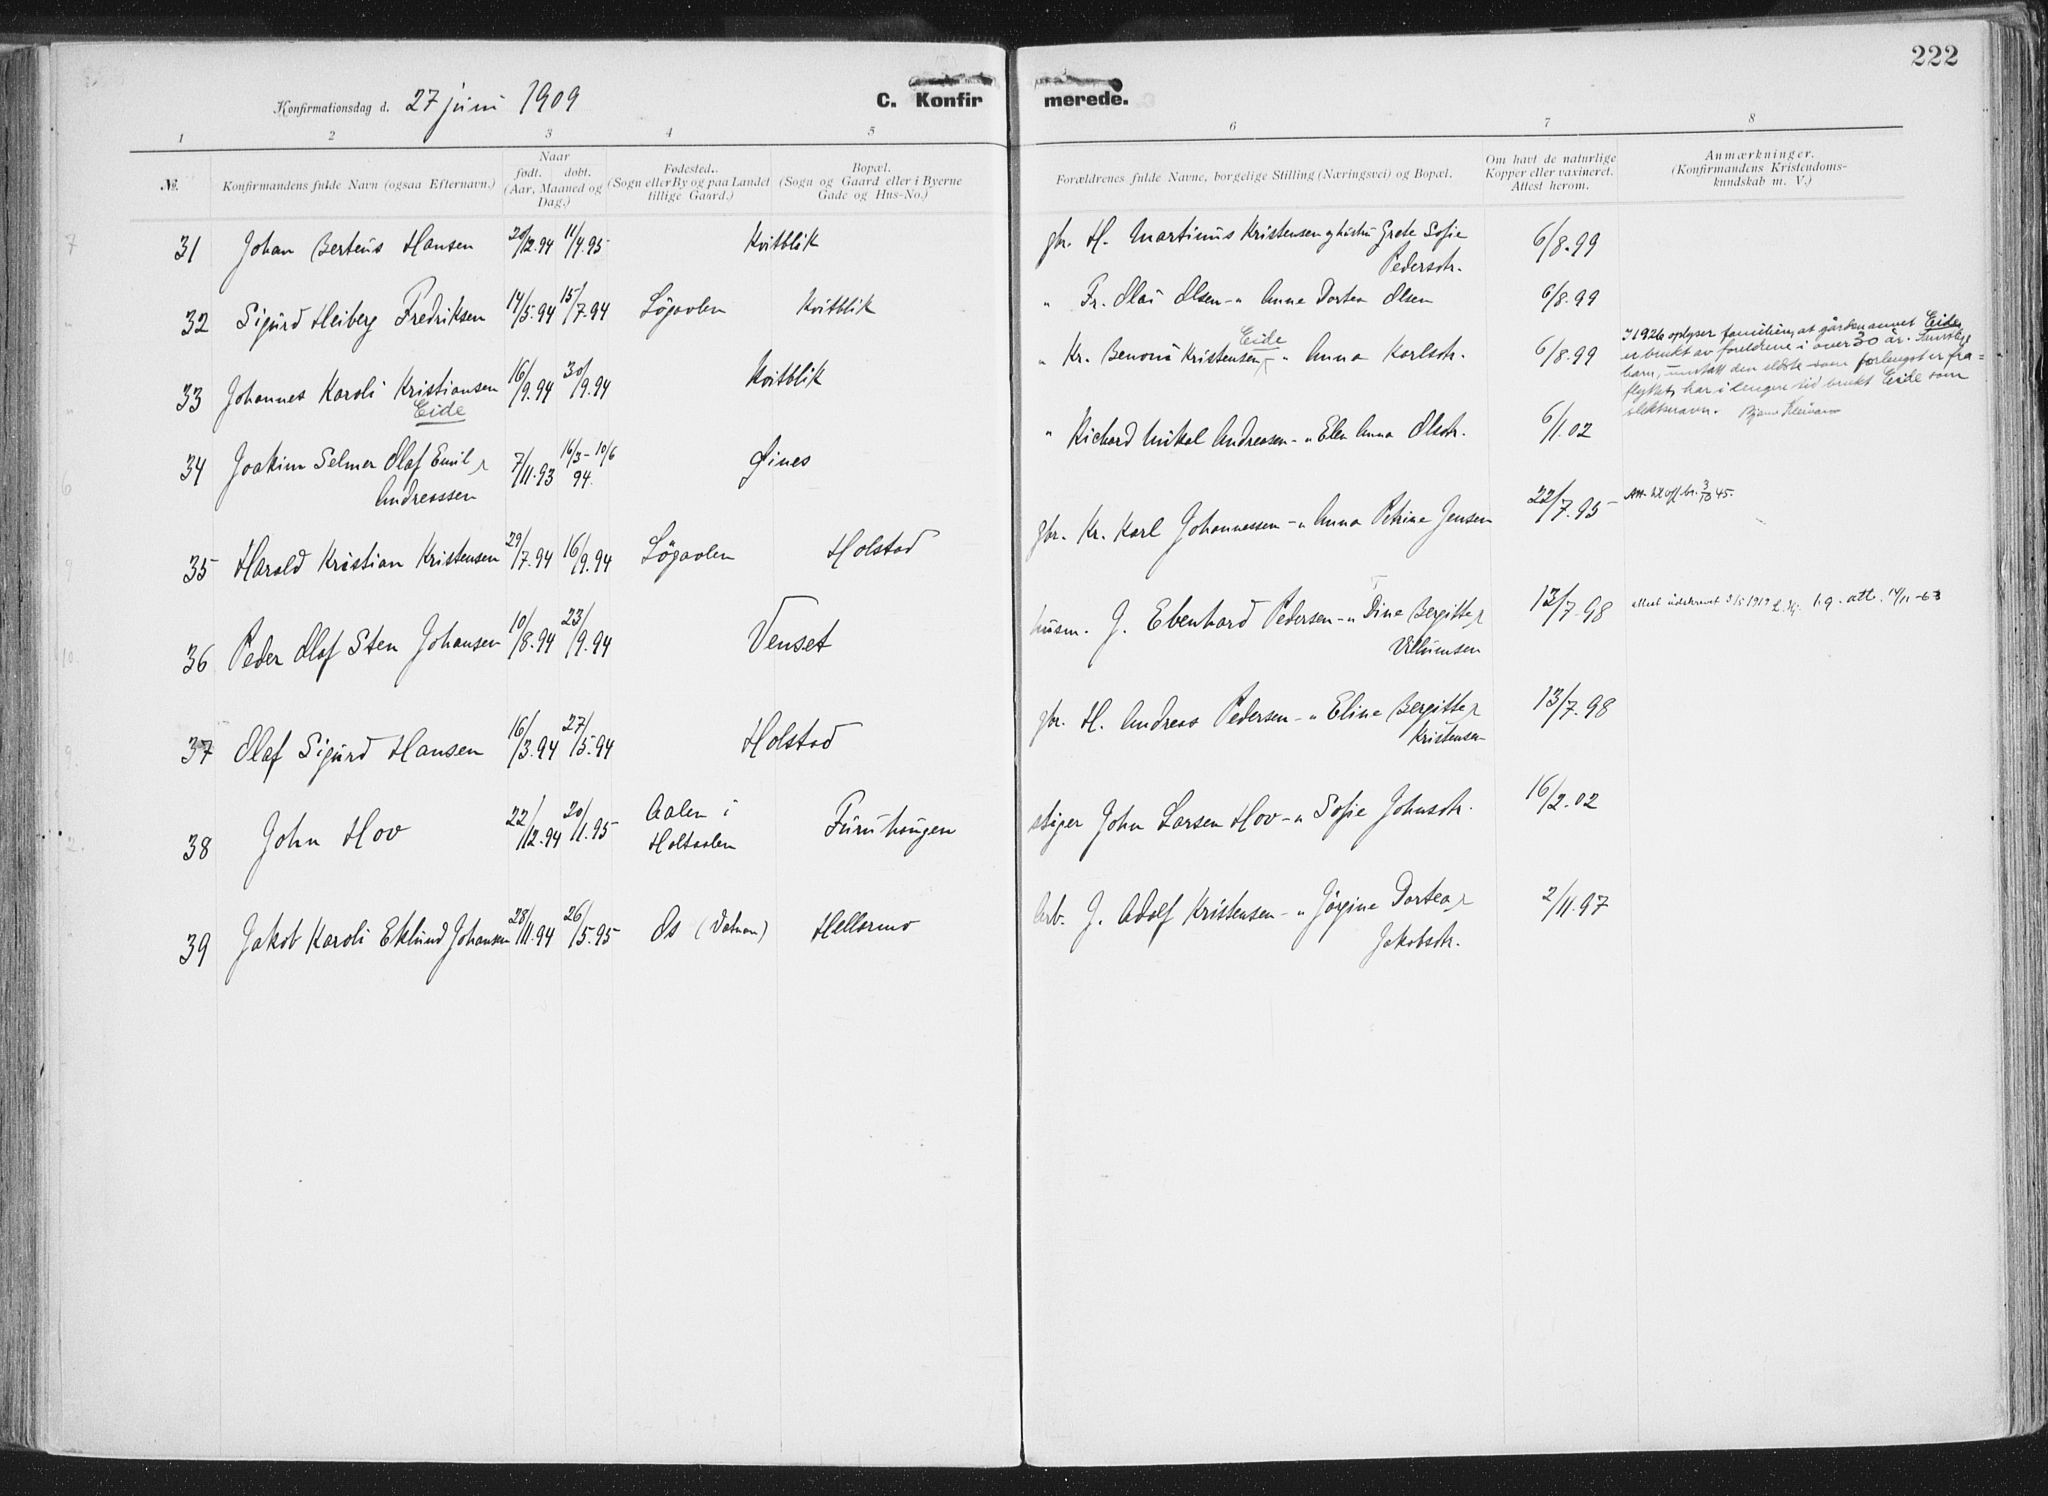 222
Konfirmationsdag d. 27 juni 1909
C. Konfirmerede.
1 2 3 4 5 6 7 8
№.
Konfirmandens fulde Navn (ogsaa Efternavn.)
Naar
født. døbt.
(Aar, Maaned og
Dag.)
Fødested.
(Sogn eller By og paa Landet
tillige Gaard.)
Bopæl.
(Sogn og Gaard eller i Byerne
Gade og Hus-No.)
Forældrenes fulde Navne, borgelige Stilling (Næringsvei) og Bopæl.
Om havt de naturlige
Kopper eller vaxineret.
Attest herom.
Anmærkninger.
(Konfirmandens Kristendoms-
kundskab m. V.)
31 Johan Berteus Hansen 20/12.94 11/4.95 Kvitblik gbr. H. Martinus Kristensen og hustru Grete Sofie 6/8.99
Pedersdtr.
32 Sigurd Heiberg Fredriksen 14/5.94 15/7.94 Løgavlen Kvitblik " Fr. Olai Olsen - " Anna Dortea Olsen 6/8.99
33 Johannes Karoli Kristiansen 16/9.94 30/9.94 Kvitblik " Kr. Benoni Kristensen - " Anna Karlsdtr. 6/8.99
Eide
Eide
I 1926 oplyser familien, at gårdenavnet Eide
er brukt av foreldrene i over 30 år. Samtlige
barn, unntatt den eldste som forlengst er fra-
flyttet, har i lengere tid brukt Eide som
slektsnavn.
34 Joakim Selmer Olaf Emil 7/11.93 16/3 - 10/6 94. Øines " Richard Mikal Andreasen - " Elen Anna Olsdtr. 6/1.02
Andreassen
35 Harald Kristian Kristensen 29/7.94 16/9.94 Løgavlen Holstad gbr. Kr. Karl Johannessen - " Anna Petrine Jensen 22/7.95
36 Peder Olaf Sten Johansen 10/8.94 23/9.94 Venset husm. J. Ebenhard Pedersen - " Dina Bergitte 13/7.98 attest utskrevet 3/5 1919 l.g. att. 14/11-63
Villumsen
37 Olaf Sigurd Hansen 16/3.94 27/5.94 Holstad gbr. H. Andreas Pedersen - " Eline Bergitte 13/7.98
Kristensen
38 John Hov 22/12.94 20/11.95 Aalen i Furuhaugen stiger John Larsen Hov - " Sofie Johnsdtr. 16/2.02
Holtaalen
39 Jakob Karoli Eklund Johansen 28/11.94 26/5.95 Os (Vatnan) Hellarmo Arb. J. Adolf Kristensen - " Jörgine Dortea 2/11.97
Jakobsdtr.